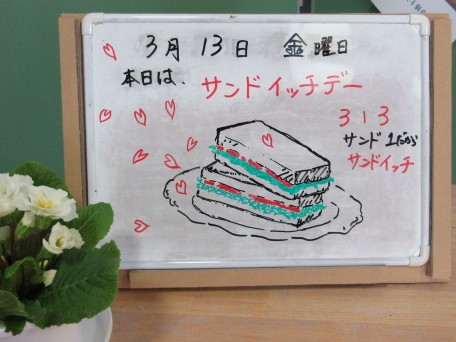 3月 13日 金曜日
本日は、サンドイッチデー
3 1 3
サンド1だから
サンドイッチ